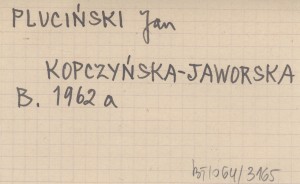 PLUCIŃSKI Jan
KOPCZYŃSKA-JAWORSKA
B. 1962 a
/3165